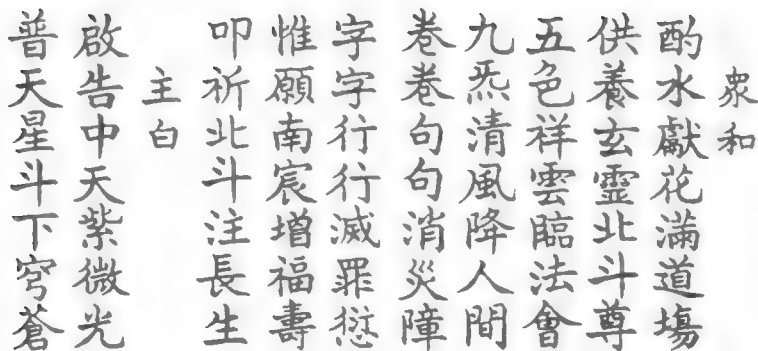 眾和
酌水獻花滿道場
供養玄靈北斗尊
五色祥雲臨法會
九炁清風降人間
卷卷句句消災障
字字行行滅罪愆
惟願南宸增福壽
叩祈北斗注長生
主白
啟告中天紫微光
普天星斗下穹蒼